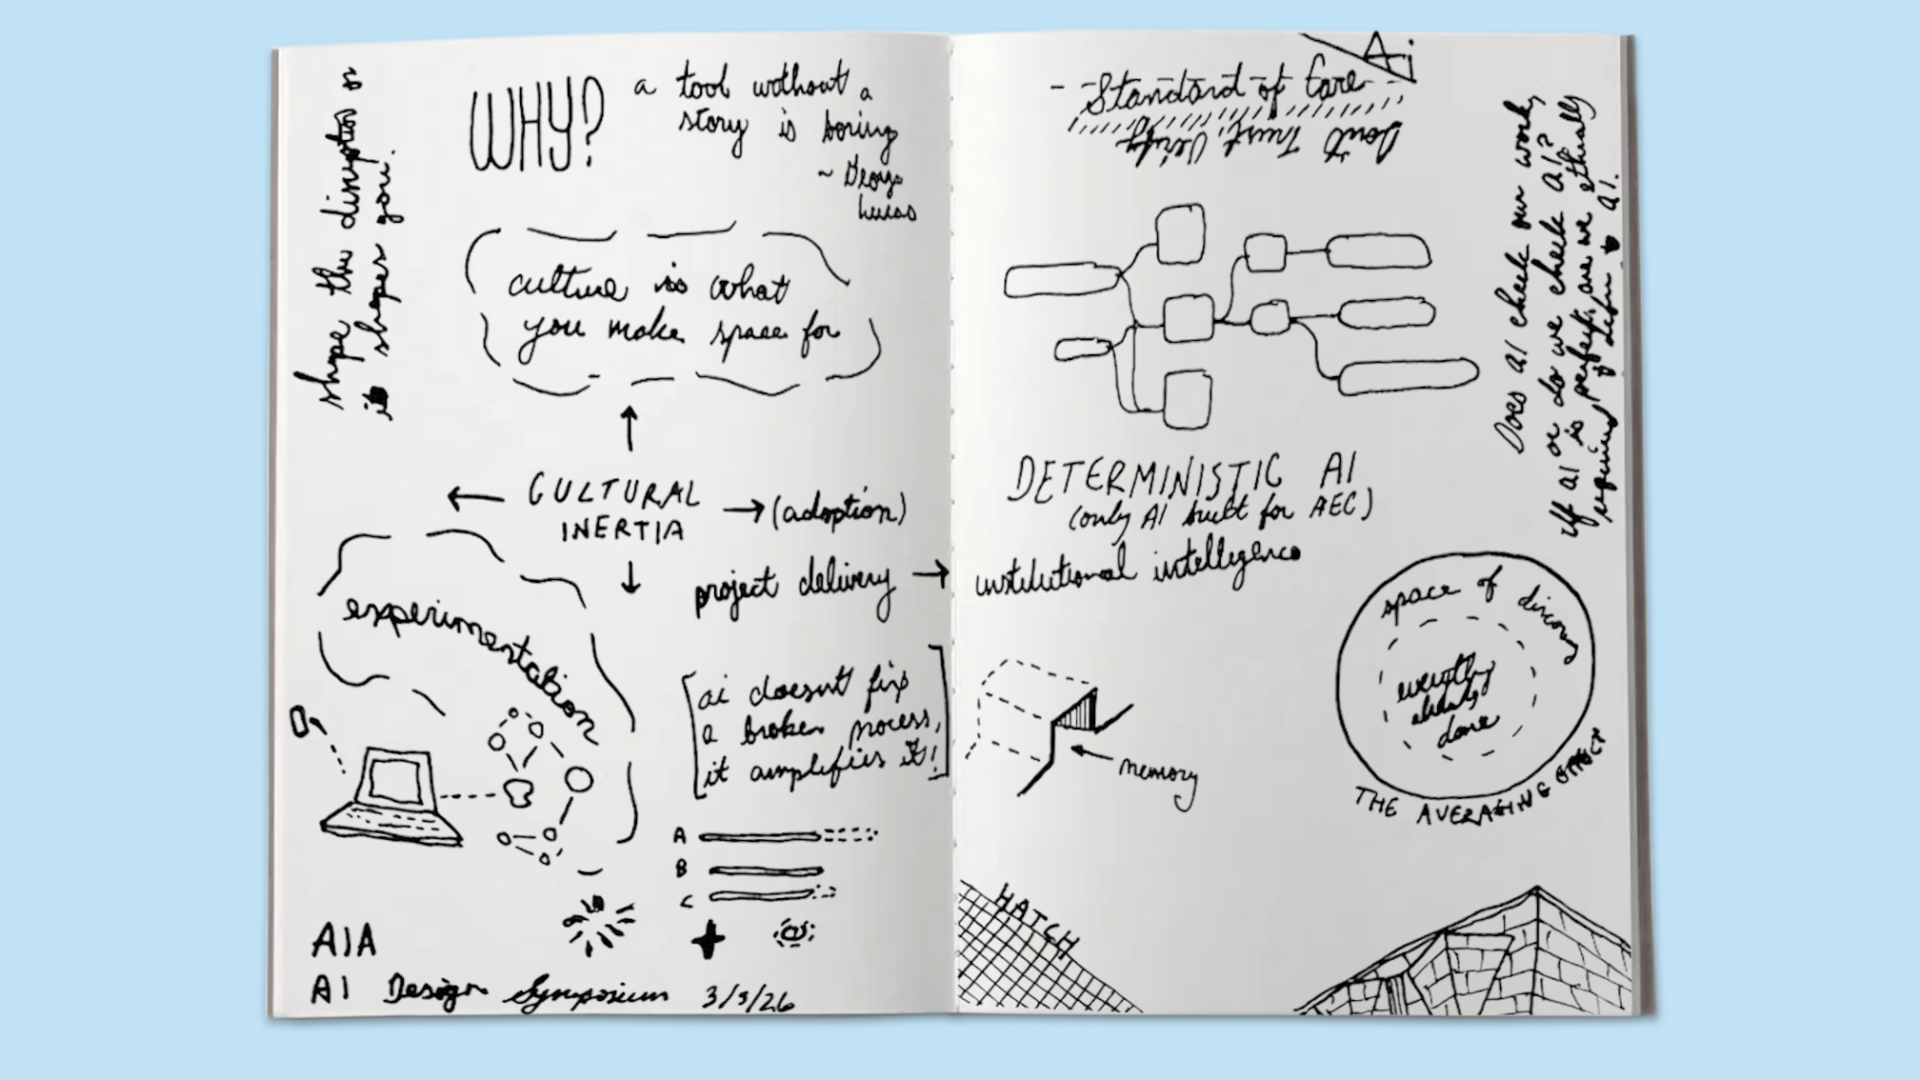 shape the disruption or
it shapes you.
WHY?
a tool without a
story is boring
~ George
Lucas
culture is what
you make space for
CULTURAL
INERTIA
(adoption)
experimentation
project delivery → institutional intelligence
[ai doesn't fix
a broken process,
it amplifies it!]
A
B
C
AIA
AI Design Symposium 3/5/26
Ai
- Standard of Care -
Don't Trust, Verify
Does AI check our work,
or do we check AI?
If AI is perfect, are we ethically
required
AI.
DETERMINISTIC AI
(only AI built for AEC)
memory
space of discovery
everything
already
done
THE AVERAGING EFFECT
HATCH